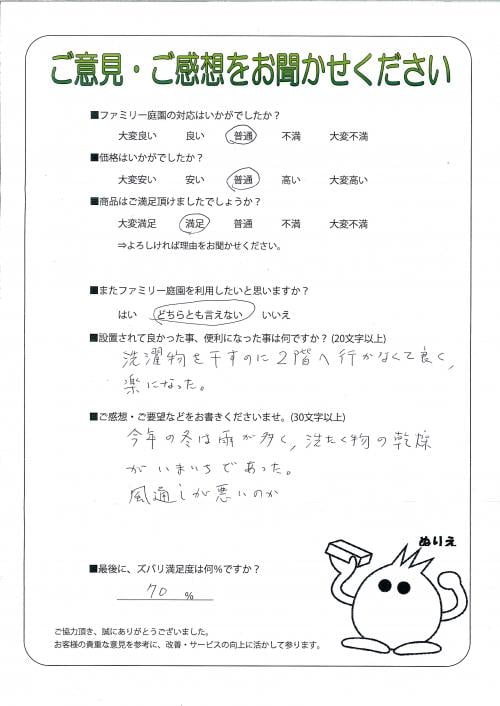 ご意見・ご感想をお聞かせください
■ファミリー庭園の対応はいかがでしたか？
大変良い 良い 普通 不満 大変不満
■価格はいかがでしたか？
大変安い 安い 普通 高い 大変高い
■商品はご満足頂けましたでしょうか？
大変満足 満足 普通 不満 大変不満
⇒よろしければ理由をお聞かせください。
■またファミリー庭園を利用したいと思いますか？
はい どちらとも言えない いいえ
■設置されて良かった事、便利になった事は何ですか？(20文字以上)
洗濯物を干すのに２階へ行かなくて良く、
楽になった。
■ご感想・ご要望などをお書きくださいませ。(30文字以上)
今年の冬は雨が多く、洗たく物の乾燥
がいまいちであった。
風通しが悪いのか
ぬりえ
■最後に、ズバリ満足度は何％ですか？
70 %
ご協力頂き、誠にありがとうございました。
お客様の貴重な意見を参考に、改善・サービスの向上に活かして参ります。